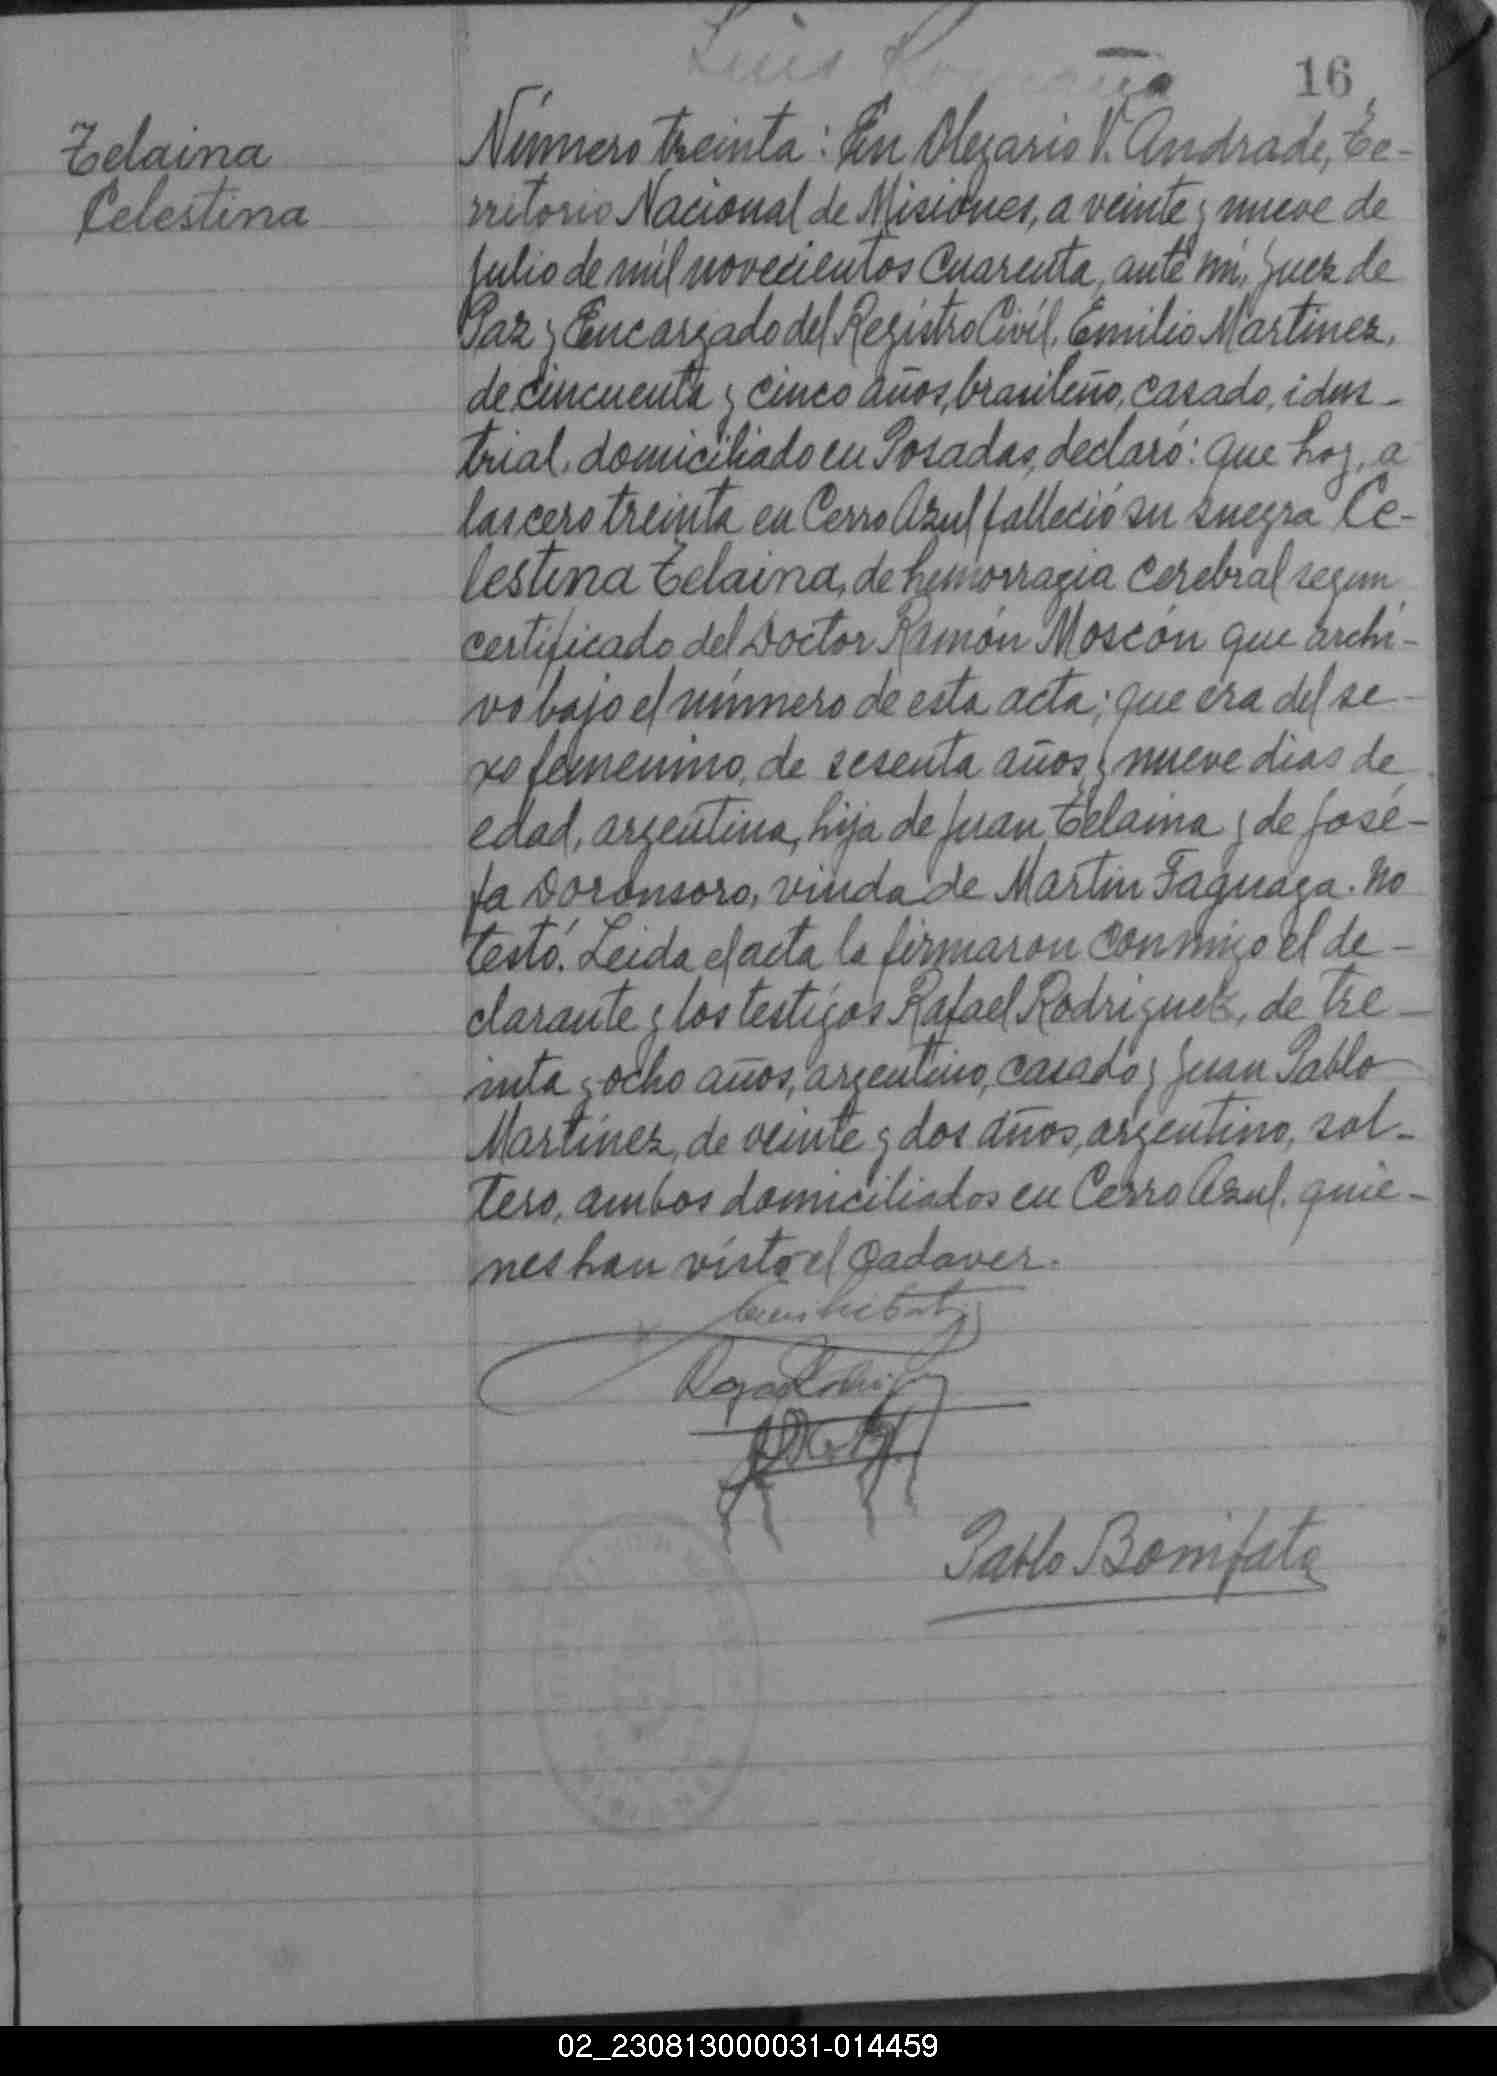 Luis
16
Telaina
Celestina
Número treinta: En Olegario V. Andrade, Te-
rritorio Nacional de Misiones, a veinte y nueve de
Julio de mil novecientos cuarenta, ante mí, Juez de
Paz y Encargado del Registro Civil, Emilio Martinez,
de cincuenta y cinco años, brasileño, casado, idus-
trial, domiciliado en Posadas, declaró: que hoy, a
las cero treinta en Cerro Azul falleció su suegra Ce-
lestina Telaina, de hemorragia cerebral segun
certificado del Doctor Ramón Moscón que archi-
vo bajo el número de esta acta; que era del se-
xo femenino, de sesenta años y nueve dias de
edad, argentina, hija de Juan Telaina y de José-
fa Doronsoro, viuda de Martin Faguaga. No
testó. Leida el acta la firmaron conmigo el de-
clarante y los testigos Rafael Rodriguez, de tre-
inta y ocho años, argentino, casado y Juan Pablo
Martinez, de veinte y dos años, argentino, sol-
tero, ambos domiciliados en Cerro Azul, quie-
nes han visto el cadaver.
Pablo Bonifato
02_230813000031-014459